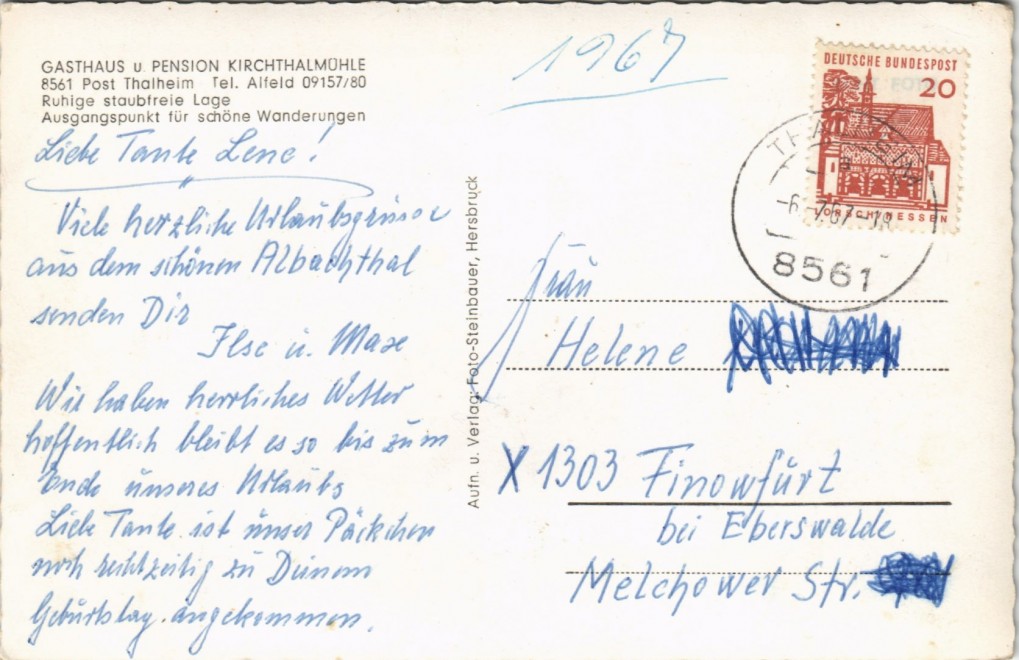 GASTHAUS u. PENSION KIRCHTHALMÜHLE
8561 Post Thalheim Tel. Alfeld 09157/80
Ruhige staubfreie Lage
Ausgangspunkt für schöne Wanderungen
Liebe Tante Lene!
Viele herzliche Urlaubsgrüsse
aus dem schönen Albachthal
senden Dir
Ilse u. Maxe
Wir haben herrliches Wetter
hoffentlich bleibt es so bis zum
Ende unseres Urlaubs
Liebe Tante ist unser Päckchen
noch rechtzeitig zu Deinem
Geburtstag angekommen.
Aufn. u. Verlag: Foto-Steinbauer, Hersbruck
1967
DEUTSCHE BUNDESPOST
20
LORSCH/HESSEN
THALHEIM
-6.-7.67-18
8561
Frau
Helene
X 1303 Finowfurt
bei Eberswalde
Melchower Str.